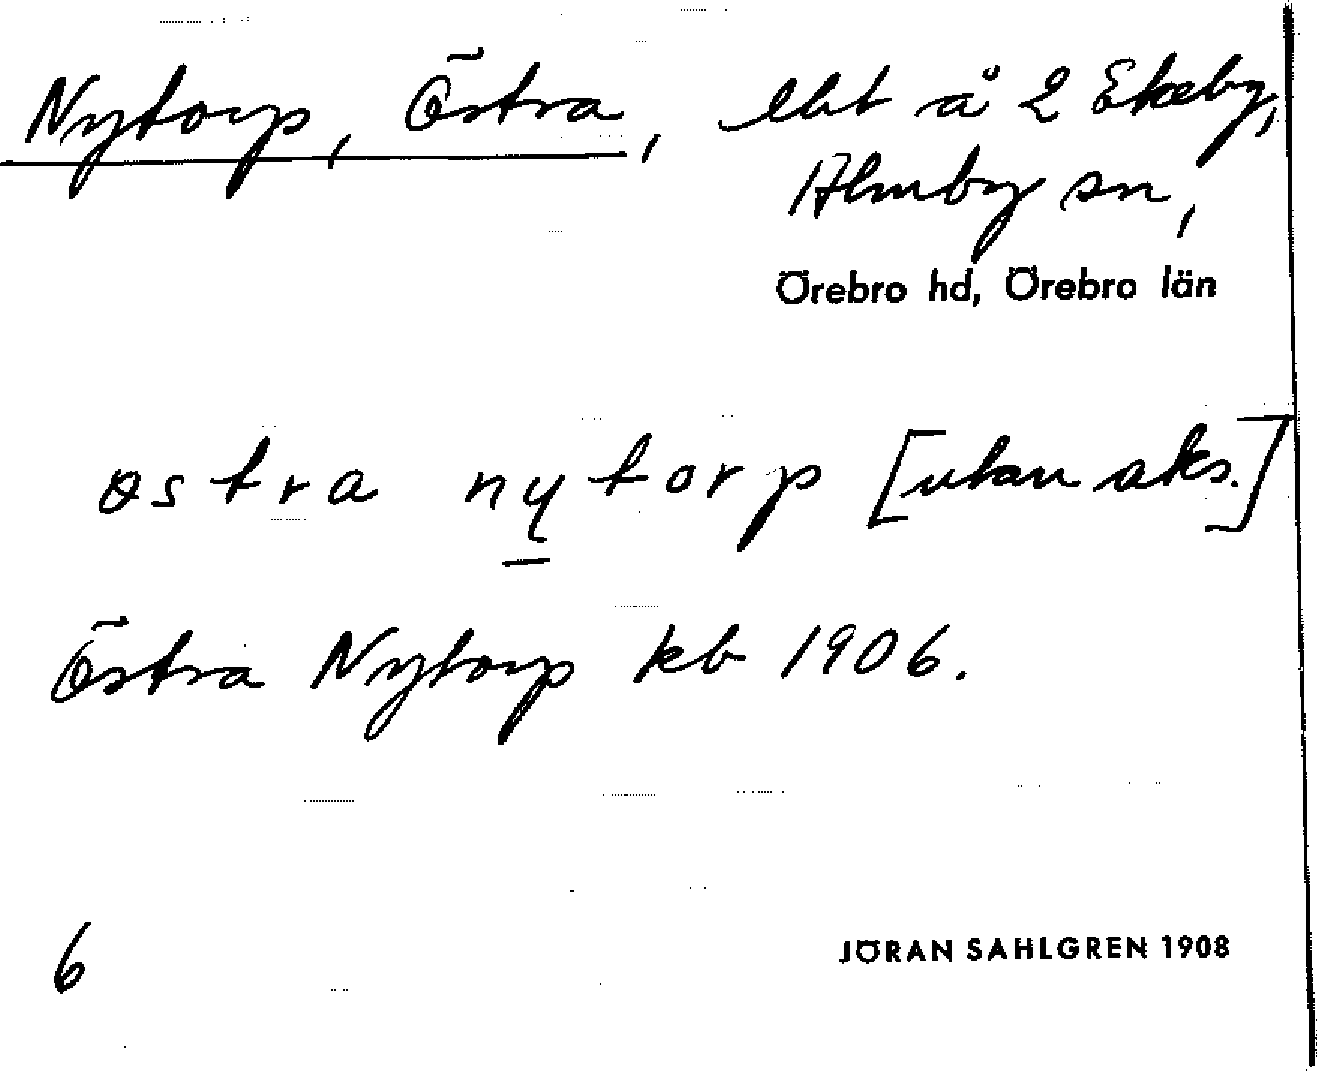 Nytorp, Östra, lht å 2 Ekeby,
Almby sn,
Örebro hd, Örebro län
østra nytorp [utan aks.]
Östra Nytorp kb 1906.
6
JÖRAN SAHLGREN 1908